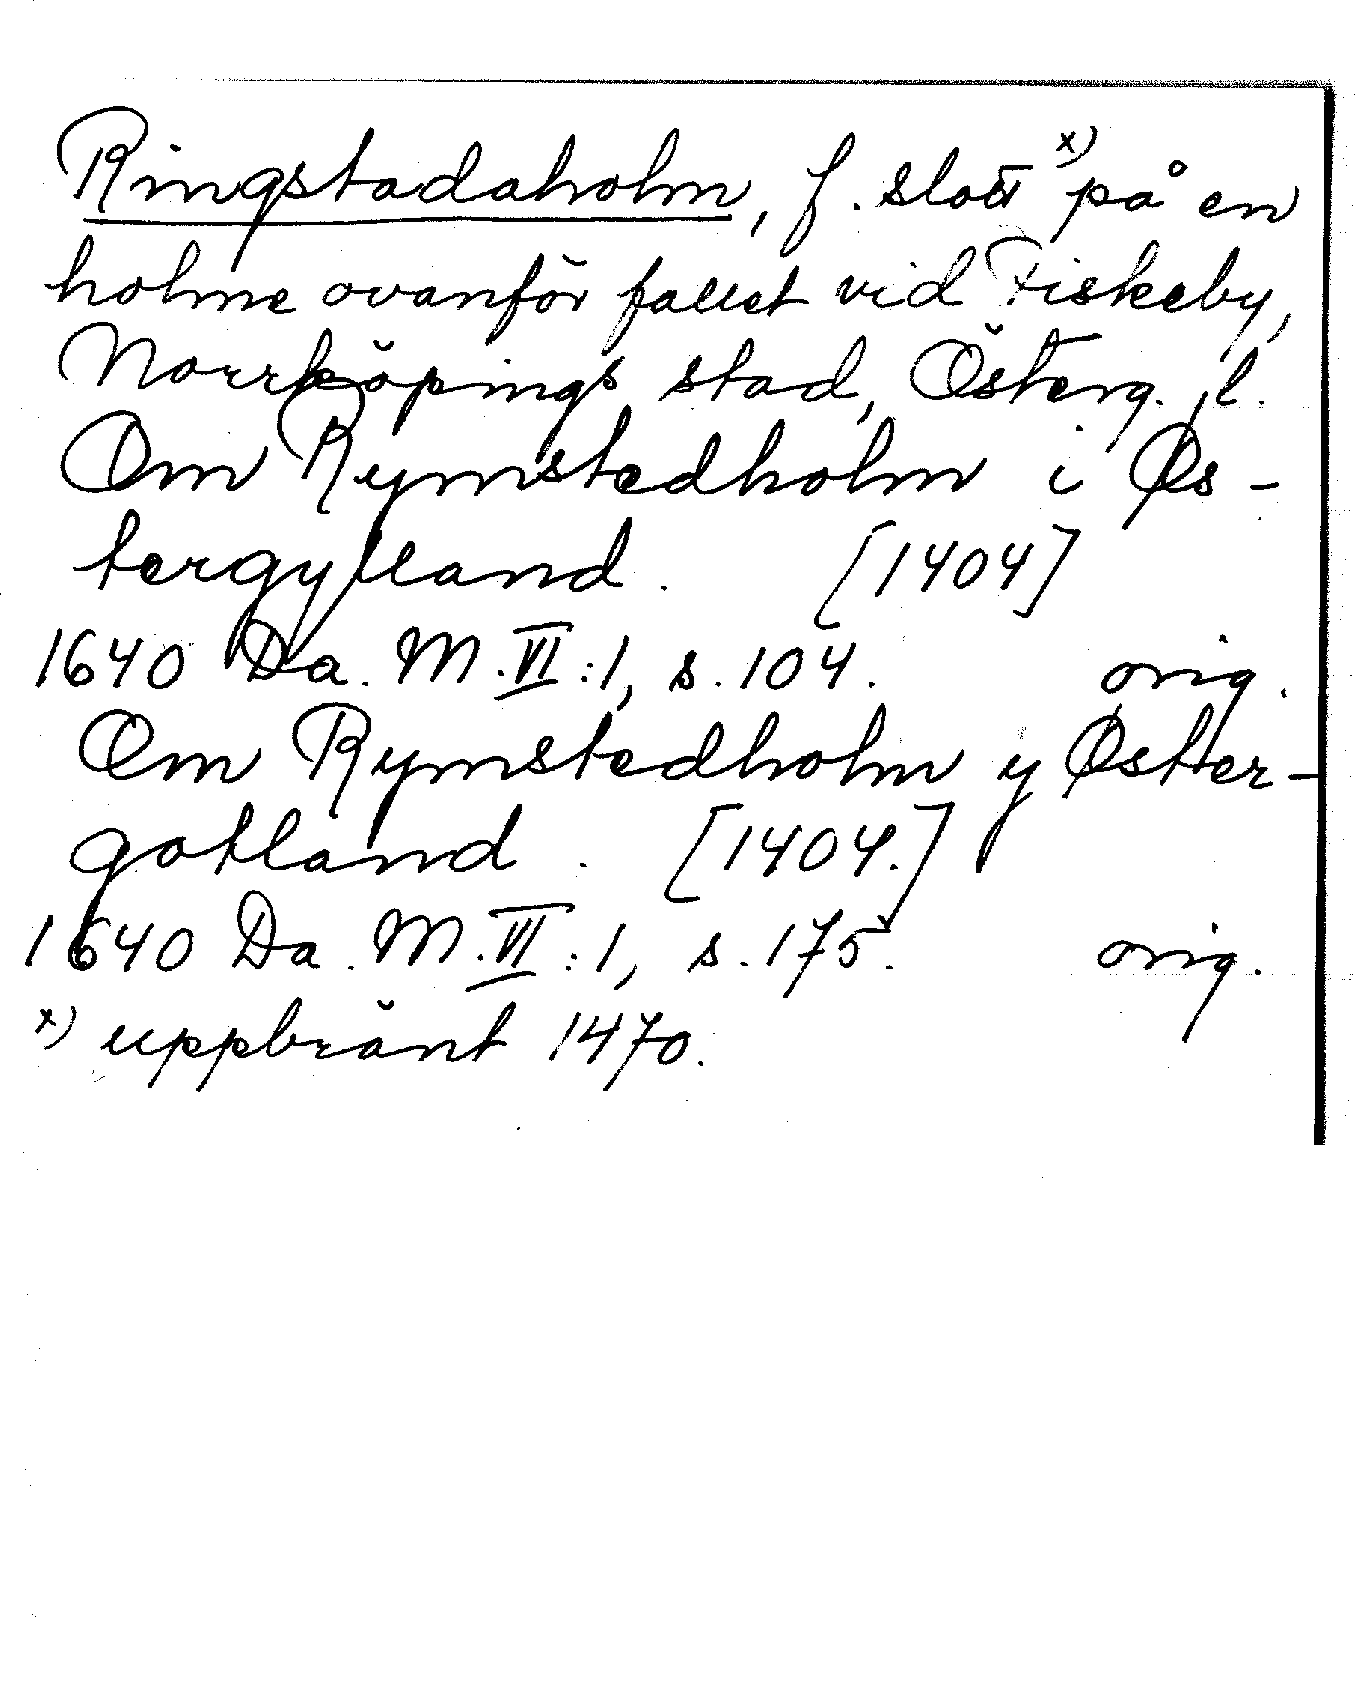 Ringstadaholm, f. slott x) på en
holme ovanför fallet vid Fiskeby,
Norrköpings stad, Österg. l.
Om Rymstedholm i Øs-
tergylland. [1404]
1640 Da. M. VI:1, s. 104. orig.
Om Rymstedholm y Øster-
gotland. [1404.]
1640 Da. M. VI:1, s. 175. orig.
x) uppbränt 1470.